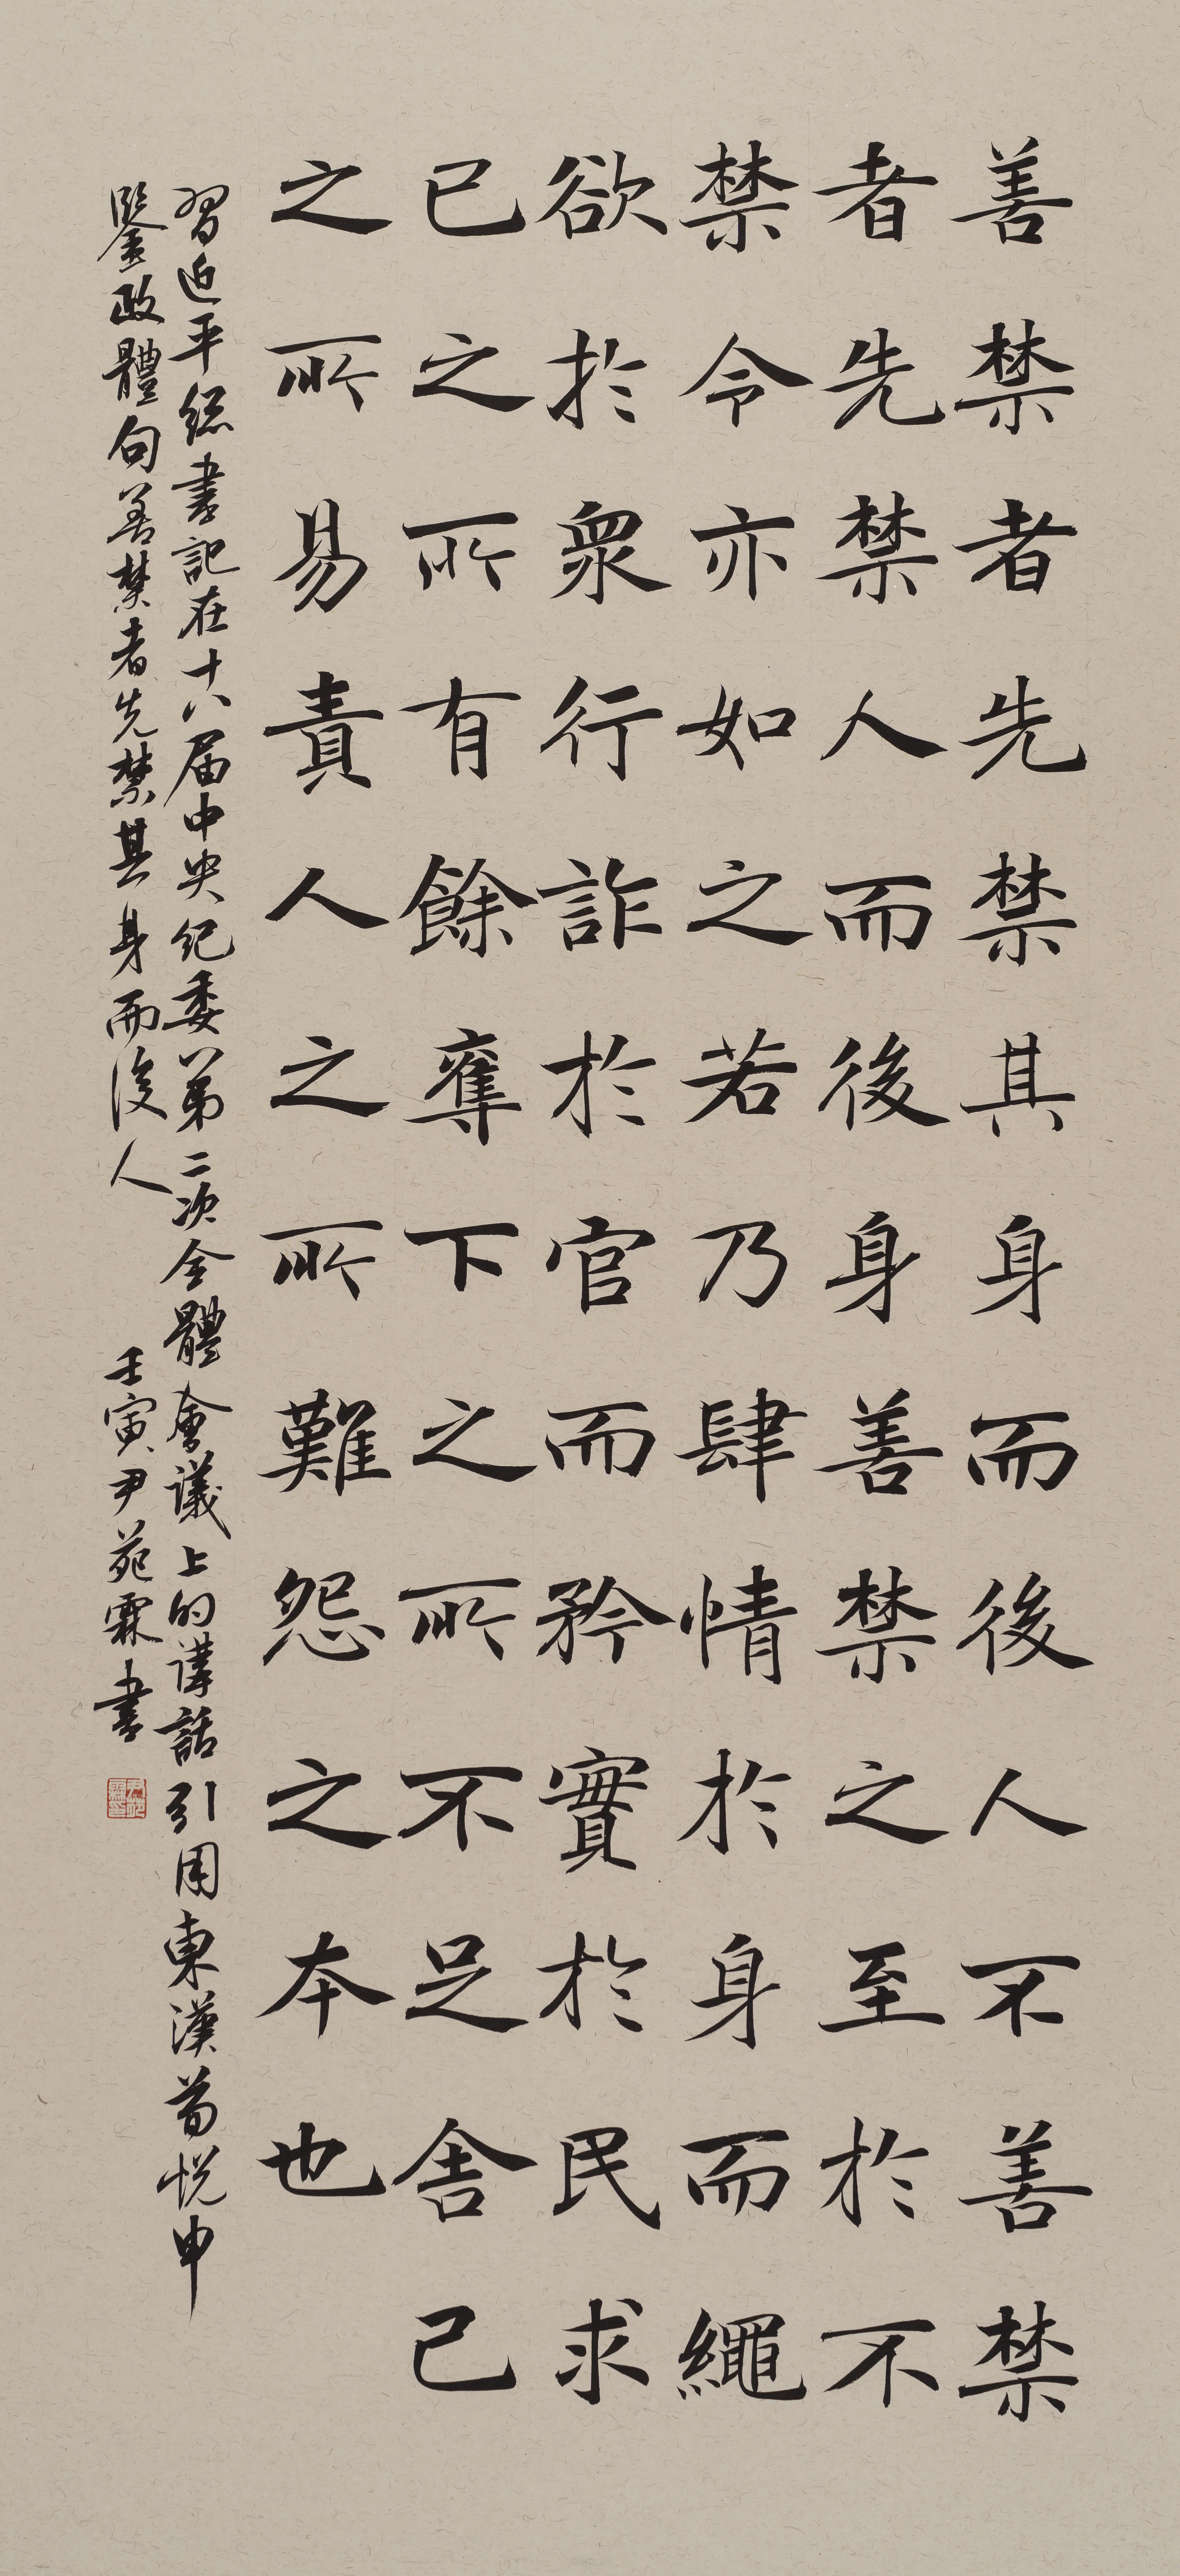 善禁者先禁其身而後人不善禁
者先禁人而後身善禁之至於不
禁令亦如之若乃肆情於身而繩
欲於衆行詐於官而矜實於民求
已之所有餘奪下之所不足舍己
之所易責人之所難怨之本也
習近平總書記在十八屆中央紀委第二次全體會議上的講話引用東漢荀悦申
鑒政體句善禁者先禁其身而後人
壬寅尹苑霖書